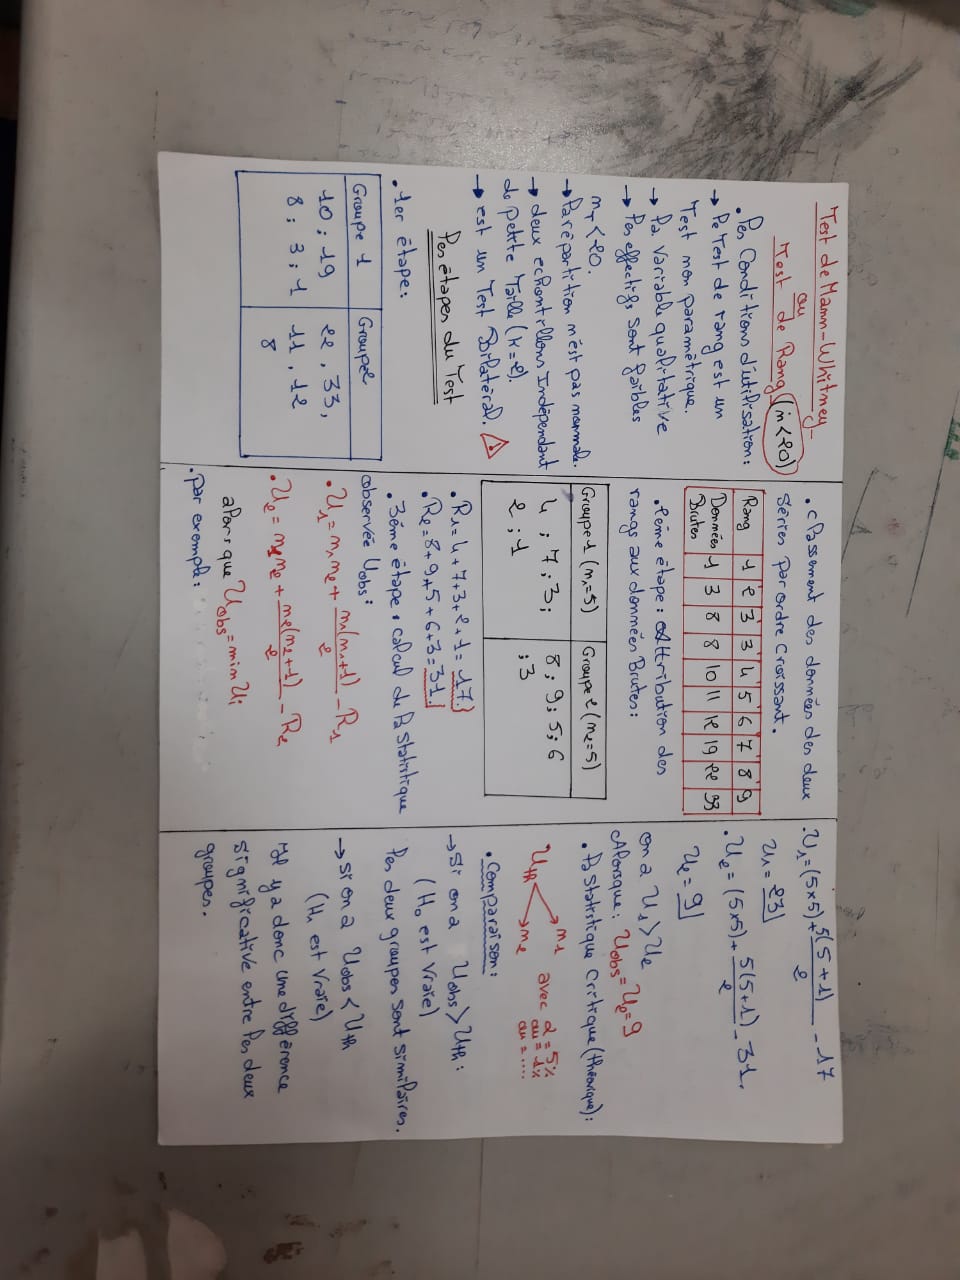 Test de Mann-Whitney
ou
Test de Rang (n<20)
. Les Conditions d'utilisation:
→ Le Test de rang est un
Test non paramétrique.
→ La Variable qualitative
→ Les effectifs sont faibles
nT < 20.
→ La répartition n'est pas normale.
→ deux echantillons Indépendant
de petite Taille (K=2).
→ est un Test Bilatéral. ⚠
Les étapes du Test
. 1er étape:
Groupe 1 Groupe2
10 ; 19 22 , 33,
8 ; 3 ; 1 11 , 12
8
. Classement des données des deux
séries par ordre Croissant.
Rang 1 2 3 3 4 5 6 7 8 9
Données Brutes 1 3 8 8 10 11 12 19 22 33
. 2ème étape: Attribution des
rangs aux données Brutes:
Groupe 1 (n1=5) Groupe 2 (n2=5)
4 ; 7 ; 3 ; 8 ; 9 ; 5 ; 6
2 ; 1 ; 3
. R1 = 4+7+3+2+1 = 17.
. R2 = 8+9+5+6+3 = 31.
. 3éme étape: calcul de la statistique
observée Uobs:
. U1 = n1n2 + n1(n1+1)/2 - R1
. U2 = n1n2 + n2(n2+1)/2 - R2
alors que Uobs = min Ui
. par exemple:
. U1 = (5×5) + 5(5+1)/2 - 17
U1 = 23
. U2 = (5×5) + 5(5+1)/2 - 31.
U2 = 9
on a U1 > U2
Alorsque: Uobs = U2 = 9
. La Statistique Critique (théorique):
Uth n1 n2 avec α = 5%
ou = 1%
ou = ....
. Comparaison:
→ Si on a Uobs > Uth:
(H0 est Vraie)
les deux groupes sont similaires.
→ si on a Uobs < Uth
(H1 est Vraie)
Il y a donc une différence
significative entre les deux
groupes.